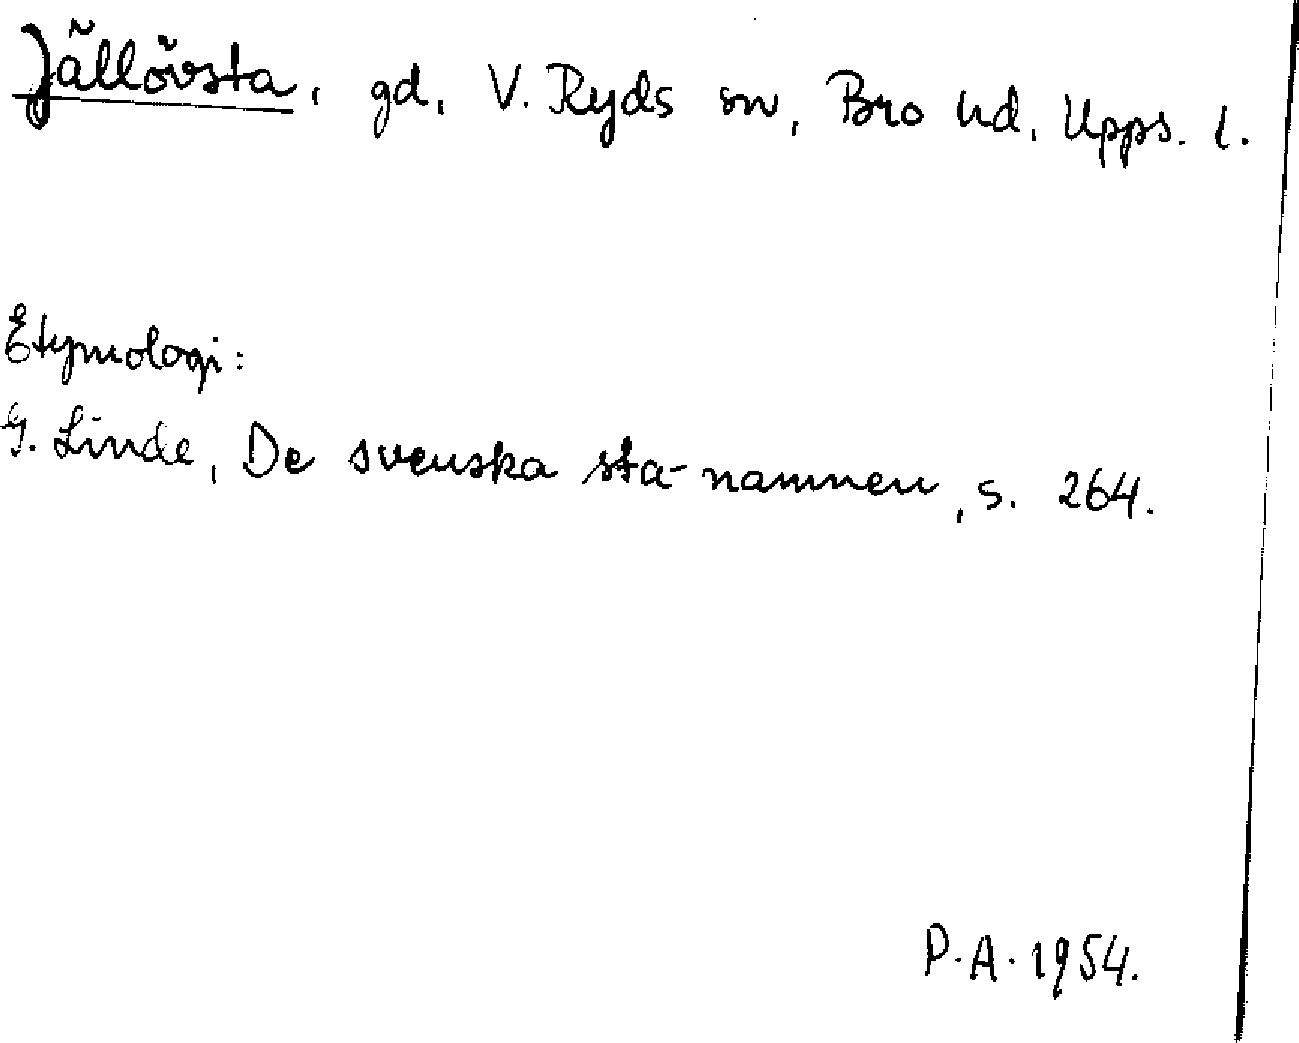 Jällövsta, gd, V. Ryds sn, Bro hd, Upps. l.
Etymologi:
G. Linde, De svenska sta-namnen, s. 264.
P.A. 1954.